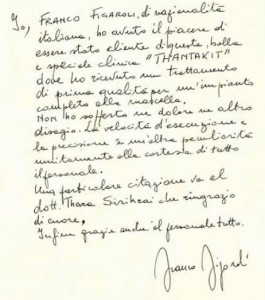 Io, FRANCO FIGAROLI, di nazionalità
italiana, ho avuto il piacere di
essere stato cliente di questa bella
e speciale clinica "THANTAKIT"
dove ho ricevuto un trattamento
di prima qualità per un'impianto
completo alla mascella.
Non ho sofferto ne dolore ne altro
disagio. La velocità d'esecuzione e
la precisione è un'altra peculiarità
unitamente alla cortesia di tutto
il personale.
Una particolare citazione va al
dott. Thara Sirikrai che ringrazio
di cuore.
Infine grazie anche al personale tutto.
Franco